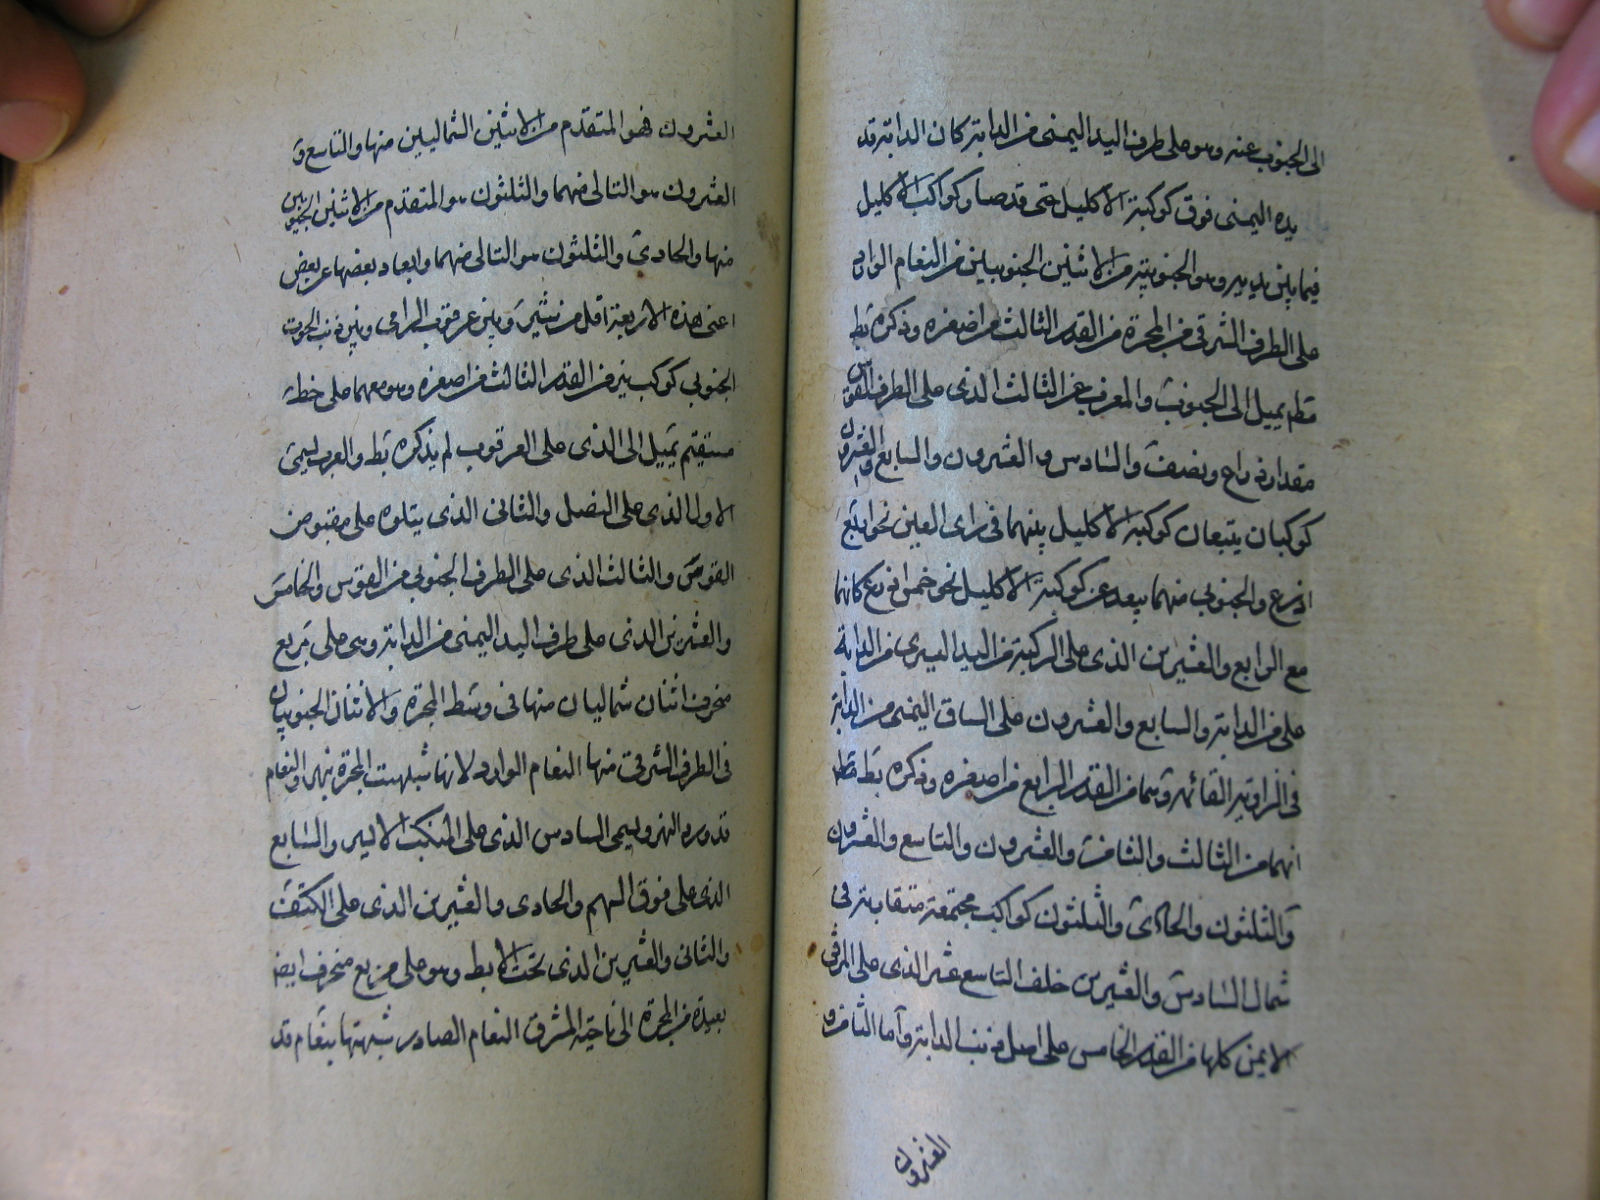 الى الجنوب عنه وهو على طرف اليد اليمنى من الدابة كان الدابة قد
يده اليمنى فوق كوكبة الاكليل حتى قد صار كواكب الاكليل
فيما بين يديه وهو الجنوبية من الاثنين الجنوبيين من النعام الوارد
على الطرف الشرقى من المجرة من القدر الثالث من اصغره وذكره بط
مطلقا يميل الى الجنوب والمعرب عن الثالث الذى على الطرف القوس
مقدار ذراع ونصف والسادس والعشرون والسابع والعشرون
كوكبان يتبعان كوكبة الاكليل بينهما فى راى العين نحو اربع
اذرع والجنوبى منهما يبعد عن كوكبة الاكليل نحو خمس اذرع كانهما
مع الرابع والعشرين الذى على الركبة من اليد اليسرى من الدابة
على من الدابة والسابع والعشرون على الساق اليمنى من الدابة
فى الزاوية القائمة وهما من القدر الرابع من اصغره وذكره بط مطلقا
انهما من الثالث والثامن والعشرون والتاسع والعشرون
والثلثون والحادى والثلثون كواكب مجتمعة متقاربة فى
شمال السادس والعشرين خلف التاسع عشر الذى على المرفق
الايمن كلها من القدر الخامس على اصل ذنب الدابة واما الثامن و
العشرون
العشرون فهو المتقدم من الاثنين الشماليين منها والتاسع و
العشرون هو التالى منهما والثلثون هو المتقدم من الاثنين الجنوبيين
منها والحادى والثلثون هو التالى منهما وابعاد بعضها عن بعض
اعنى هذه الاربعة اقل من شبر وبين عرقوب الرامى وبين ذنب الحوت
الجنوبى كوكب نير من القدر الثالث من اصغره وهو معهما على خط
مستقيم يميل الى الذى على العرقوب لم يذكره بط والعرب يسمى
الاول الذى على النصل والثانى الذى يتلوه على مقبض من
القوس والثالث الذى على الطرف الجنوبى من القوس والخامس
والعشرين الذى على طرف اليد اليمنى من الدابة وهى على تربيع
منحرف اثنان شماليان منها فى وسط المجرة والاثنان الجنوبيان
فى الطرف الشرقى منها النعام الوارد لانها شبهت المجرة بنهر والنعام
قد ورد النهر ويسمى السادس الذى على المنكب الايسر والسابع
الذى على فوق السهم والحادى والعشرين الذى على الكتف
والثانى والعشرين الذى تحت الابط وهو على مربع منحرف ايضا
بعيدة من المجرة الى ناحية المشرق النعام الصادر شبهتها بنعام قد